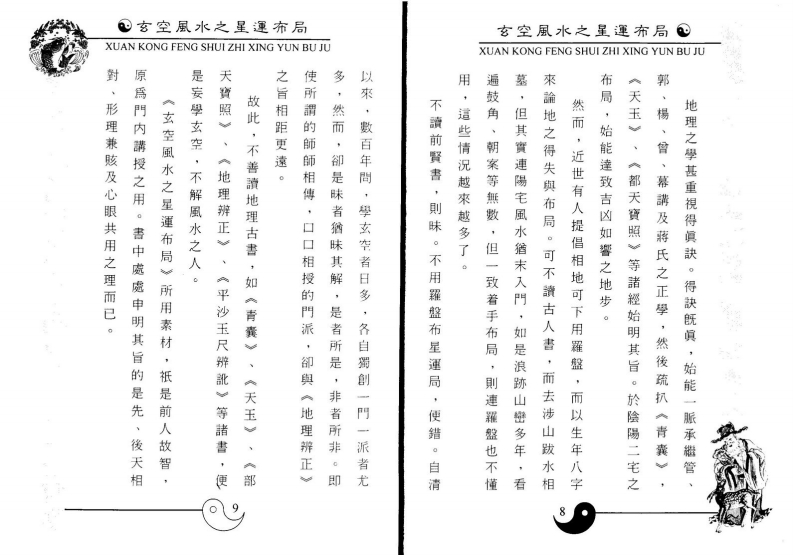 玄空風水之星運布局
XUAN KONG FENG SHUI ZHI XING YUN BU JU
地理之學甚重視得眞訣。得訣旣眞，始能一脈承繼管、
郭、楊、曾、幕講及蔣氏之正學，然後疏扒《青囊》，
《天玉》、《都天寶照》等諸經始明其旨。於陰陽二宅之
布局，始能達致吉凶如響之地步。
然而，近世有人提倡相地可下用羅盤，而以生年八字
來論地之得失與布局。可不讀古人書，而去涉山跋水相
墓，但其實連陽宅風水猶末入門，如是浪跡山巒多年，看
遍鼓角、朝案等無數，但一致着手布局，則連羅盤也不懂
用，這些情況越來越多了。
不讀前賢書，則昧。不用羅盤布星運局，便錯。自清
8
玄空風水之星運布局
XUAN KONG FENG SHUI ZHI XING YUN BU JU
以來，數百年間，學玄空者日多，各自獨創一門一派者尤
多，然而，卻是昧者猶昧其解，是者所是，非者所非。即
使所謂的師師相傳，口口相授的門派，卻與《地理辨正》
之旨相距更遠。
故此，不善讀地理古書，如《青囊》、《天玉》、《部
天寶照》、《地理辨正》、《平沙玉尺辨訛》等諸書，便
是妄學玄空，不解風水之人。
《玄空風水之星運布局》所用素材，祇是前人故智，
原爲門内講授之用。書中處處申明其旨的是先、後天相
對、形理兼賅及心眼共用之理而已。
9